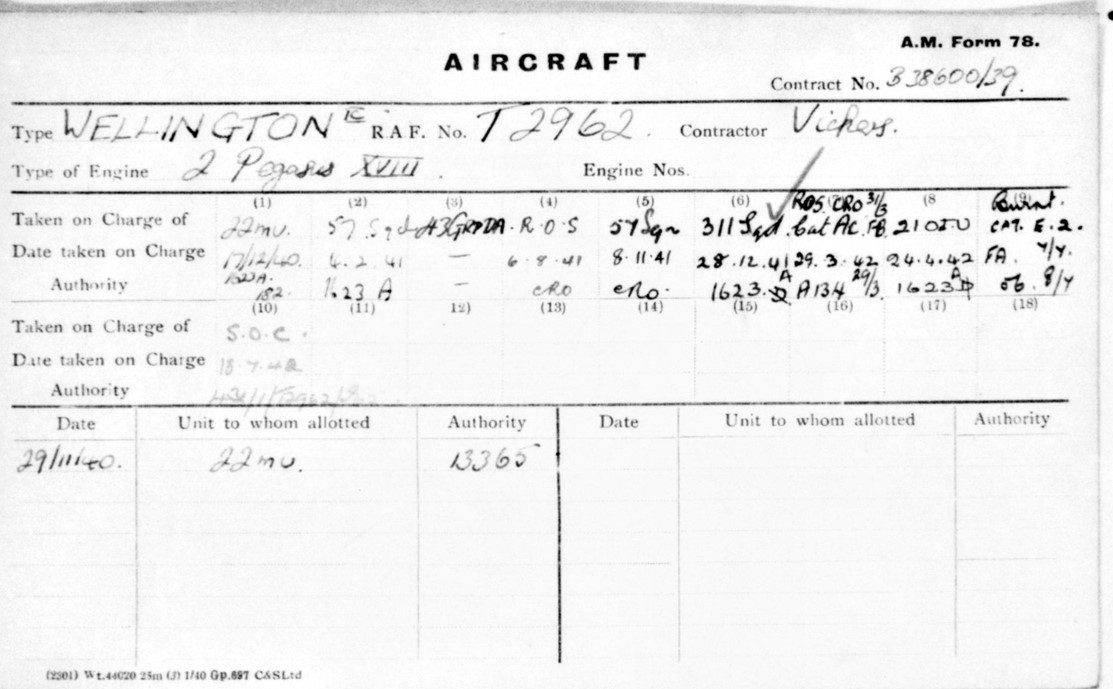 A.M. Form 78.
AIRCRAFT
Contract No. B38600/39.
Type WELLINGTON IC R.A.F. No. T2962. Contractor Vickers.
Type of Engine 2 Pegasus XVIII. Engine Nos.
(1) (2) (3) (4) (5) (6) (8
ROS CRO 31/3 Burnt.
Taken on Charge of 22 mu. 57 Sqd 43 GRPDA R.O.S 57 Sqn 311 Sqd Cat Ac. FB 21 OTU CAT. E.2.
Date taken on Charge 17/12/40. 4.2.41 — 6.8.41 8.11.41 28.12.41 29.3.42 24.4.42 FA 7/7.
Authority 182. 1623 A — CRO CRO. 1623. A A134 29/3 1623 A 8/7
(10) (11) 12) (13) (14) (15) (16) (17) (18)
Taken on Charge of S.O.C.
Date taken on Charge 18.7.42
Authority
Date Unit to whom allotted Authority Date Unit to whom allotted Authority
29/11/40. 22 mu. 13365
(2301) Wt.44020 25m (3) 1/40 Gp.697 C&SLtd